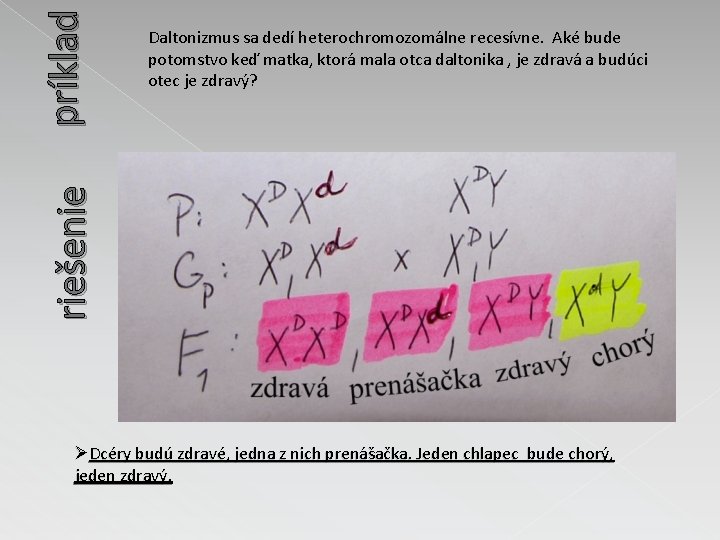 príklad
Daltonizmus sa dedí heterochromozomálne recesívne. Aké bude
potomstvo keď matka, ktorá mala otca daltonika , je zdravá a budúci
otec je zdravý?
riešenie
P: XᴰXᵈ XᴰY
Gₚ: Xᴰ, Xᵈ x Xᴰ, Y
F₁: XᴰXᴰ, XᴰXᵈ, XᴰY, XᵈY
zdravá prenášačka zdravý chorý
➢Dcéry budú zdravé, jedna z nich prenášačka. Jeden chlapec bude chorý,
jeden zdravý.